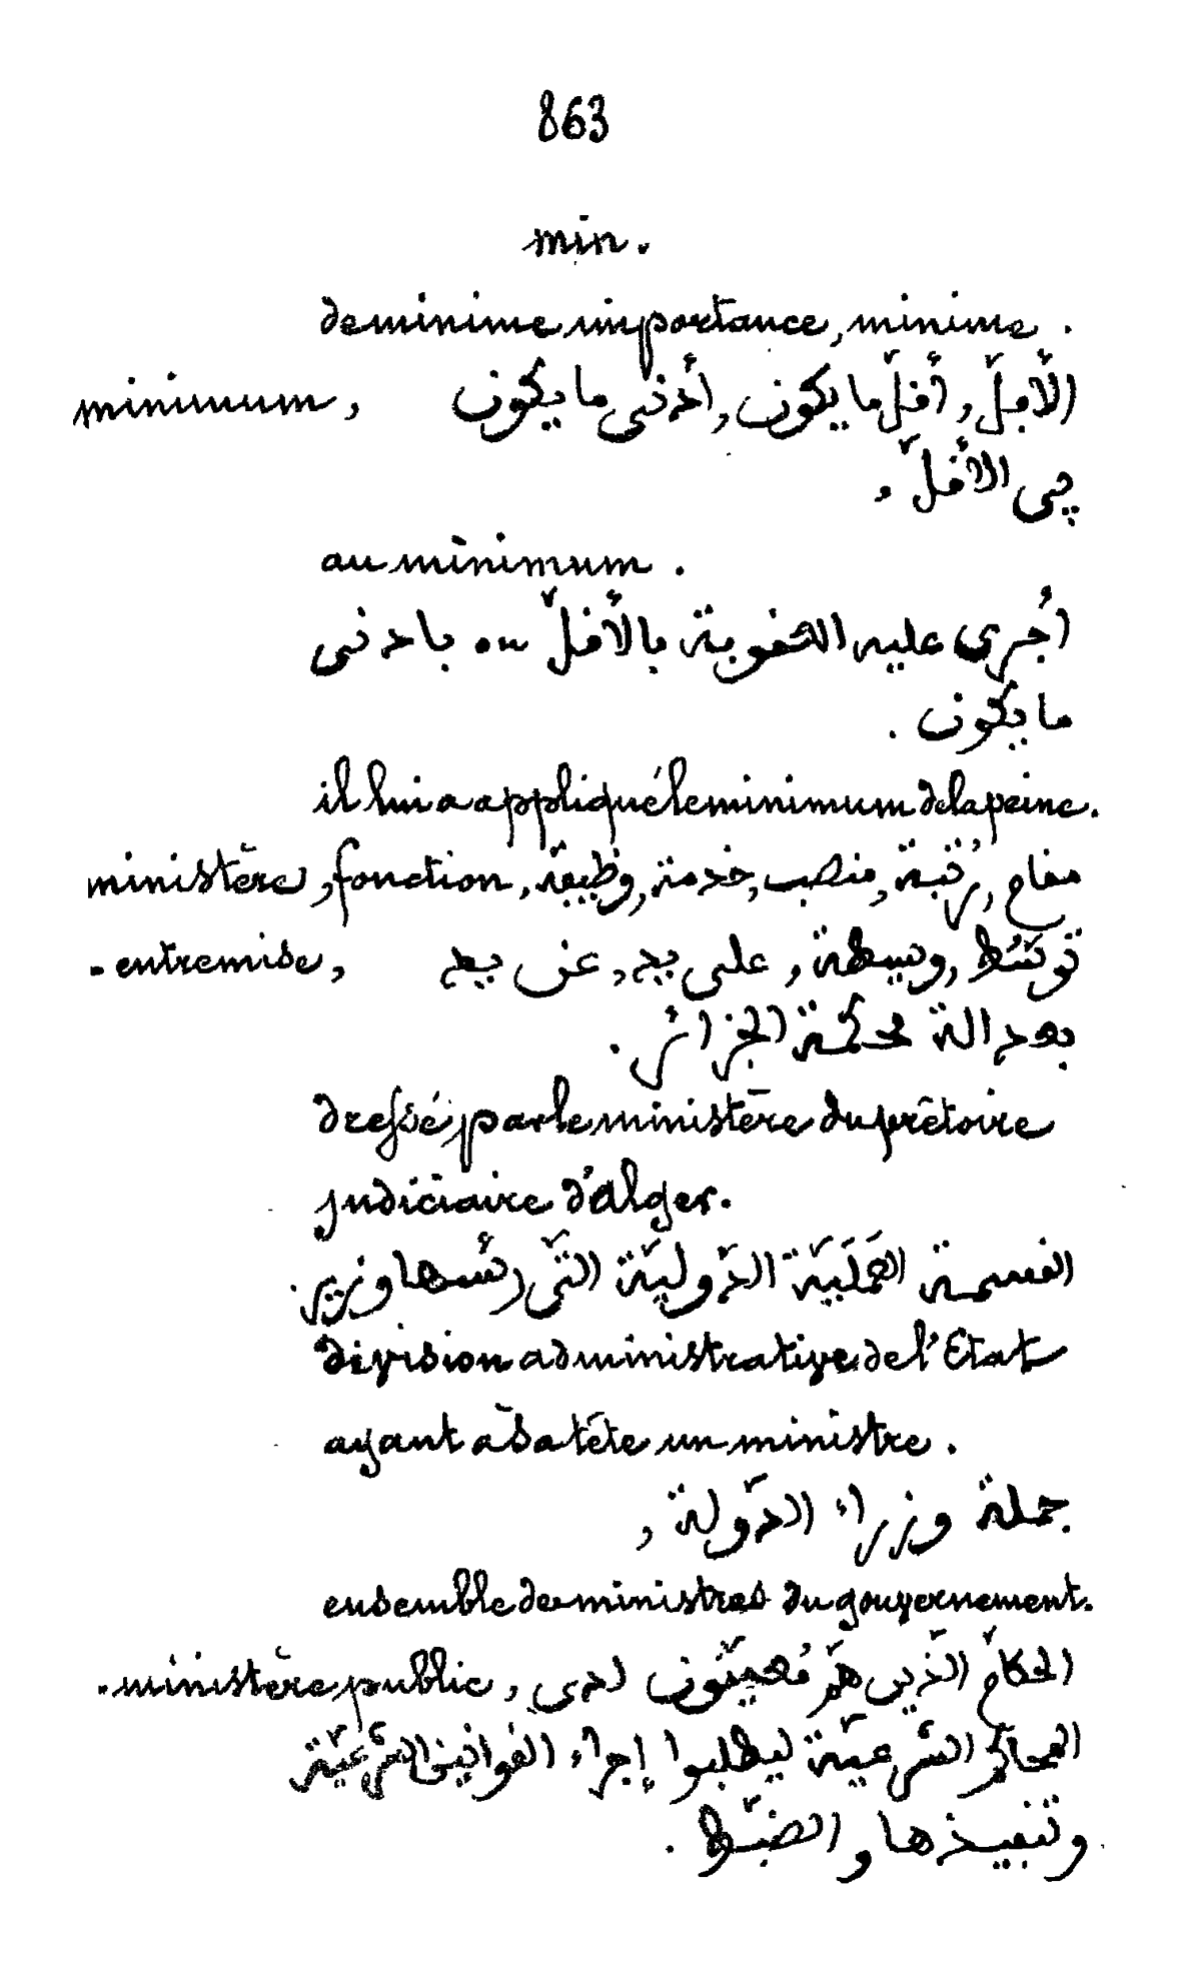 863
min.
de minime importance, minime.
minimum, الأفلّ, أفلّ ما يكون, أدنى ما يكون
في الأفلّ,
au minimum.
أُجرى عليه العفوبة بالأفلّ ... بادنى
ما يكون.
il lui a appliqué le minimum de la peine.
ministère, fonction, مفام, رُتبة, منصب, خدمة, وظيفة,
- entremise, توسّط, وسيطة, على يد, عن يد,
بعدالة محكمة الجزائر.
dressé par le ministère du prétoire
judiciaire d'Alger.
الفسمة العَمَليّة الدّوليّة التّى رئسها وزير.
division administrative de l'Etat
ayant à sa tête un ministre.
جملة وزراء الدّولة,
ensemble de ministres du gouvernement.
- ministère public, الحكّام الذّين هم مُعيّنون لدى
المحاكم الشّرعيّة ليطلبوا إجراء الفوانين الشّرعيّة
وتنفيذها والضّبط.